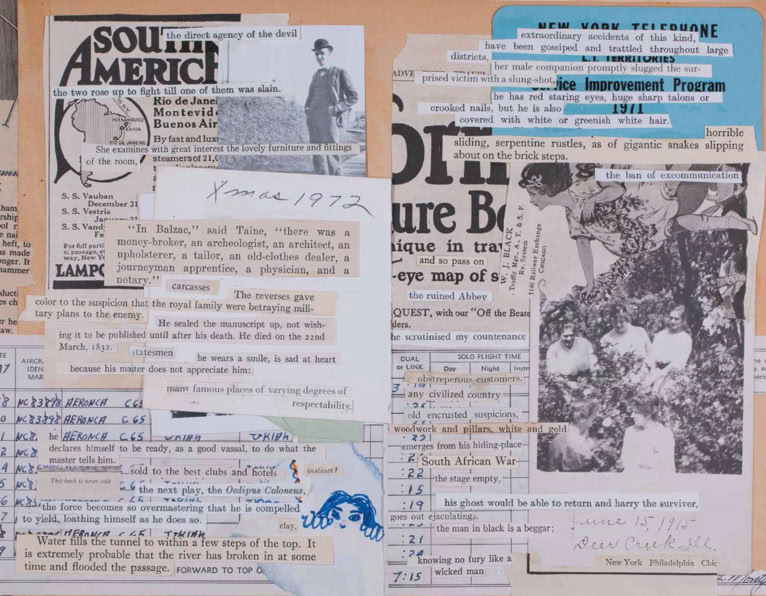 SOUTH
AMERICA
the direct agency of the devil
the two rose up to fight till one of them was slain.
Rio de Janei
Montevid
Buenos Air
PERNAMBUCO
BAHIA
RIO DE JANEIRO
By fast and lux
She examines with great interest the lovely furniture and fittings
steamers of 21,0
of the room,
S. S. Vauban
December 31
S. S. Vestris
S. S. Vand
Fe
For full parti
way, New York
LAMPO
Xmas 1972
"In Balzac," said Taine, "there was a
money-broker, an archeologist, an architect, an
upholsterer, a tailor, an old-clothes dealer, a
journeyman apprentice, a physician, and a
notary."
carcasses
The reverses gave
color to the suspicion that the royal family were betraying mili-
tary plans to the enemy.
He sealed the manuscript up, not wish-
ing it to be published until after his death. He died on the 22nd
March, 1832.
statesmen
he wears a smile, is sad at heart
because his master does not appreciate him:
many famous places of varying degrees of
respectability.
AIRCRA
IDEN
MAR
NC83898 AERONCA C65
NC83898 AERONCA C65
NC8. he AERONCA C65 UKIAH UKIAH
declares himself to be ready, as a good vassal, to do what the
master tells him.
sold to the best clubs and hotels
instinct?
This book is never sold
the next play, the Oedipus Coloneus,
the force becomes so overmastering that he is compelled
to yield, loathing himself as he does so.
clay,
Water fills the tunnel to within a few steps of the top. It
is extremely probable that the river has broken in at some
time and flooded the passage.
FORWARD TO TOP O
NEW YORK TELEPHONE
extraordinary accidents of this kind,
have been gossiped and trattled throughout large
districts,
L.I. TERRITORIES
her male companion promptly slugged the sur-
prised victim with a slung-shot,
Service Improvement Program
he has red staring eyes, huge sharp talons or
1971
crooked nails, but he is also
covered with white or greenish white hair.
horrible
sliding, serpentine rustles, as of gigantic snakes slipping
about on the brick steps.
the ban of excommunication
ure Bo
nique in trav
and so pass on
-eye map of s
the ruined Abbey
QUEST, with our "Off the Beate
ders.
he scrutinised my countenance
W. J. BLACK
Traffic Mgr., A. T. & S. F.
Ry. System
1140 Railway Exchange
CHICAGO
DUAL
or LINK
SOLO FLIGHT TIME
Day
Night
Instr
obstreperous customers.
any civilized country
old encrusted suspicions,
woodwork and pillars, white and gold
emerges from his hiding-place
:22
South African War
the stage empty,
:15
:19
his ghost would be able to return and harry the surviver,
goes out ejaculating,
the man in black is a beggar;
:21
knowing no fury like a
wicked man
7:15
June 15, 1915
Deer Creek Ill.
New York Philadelphia Chic